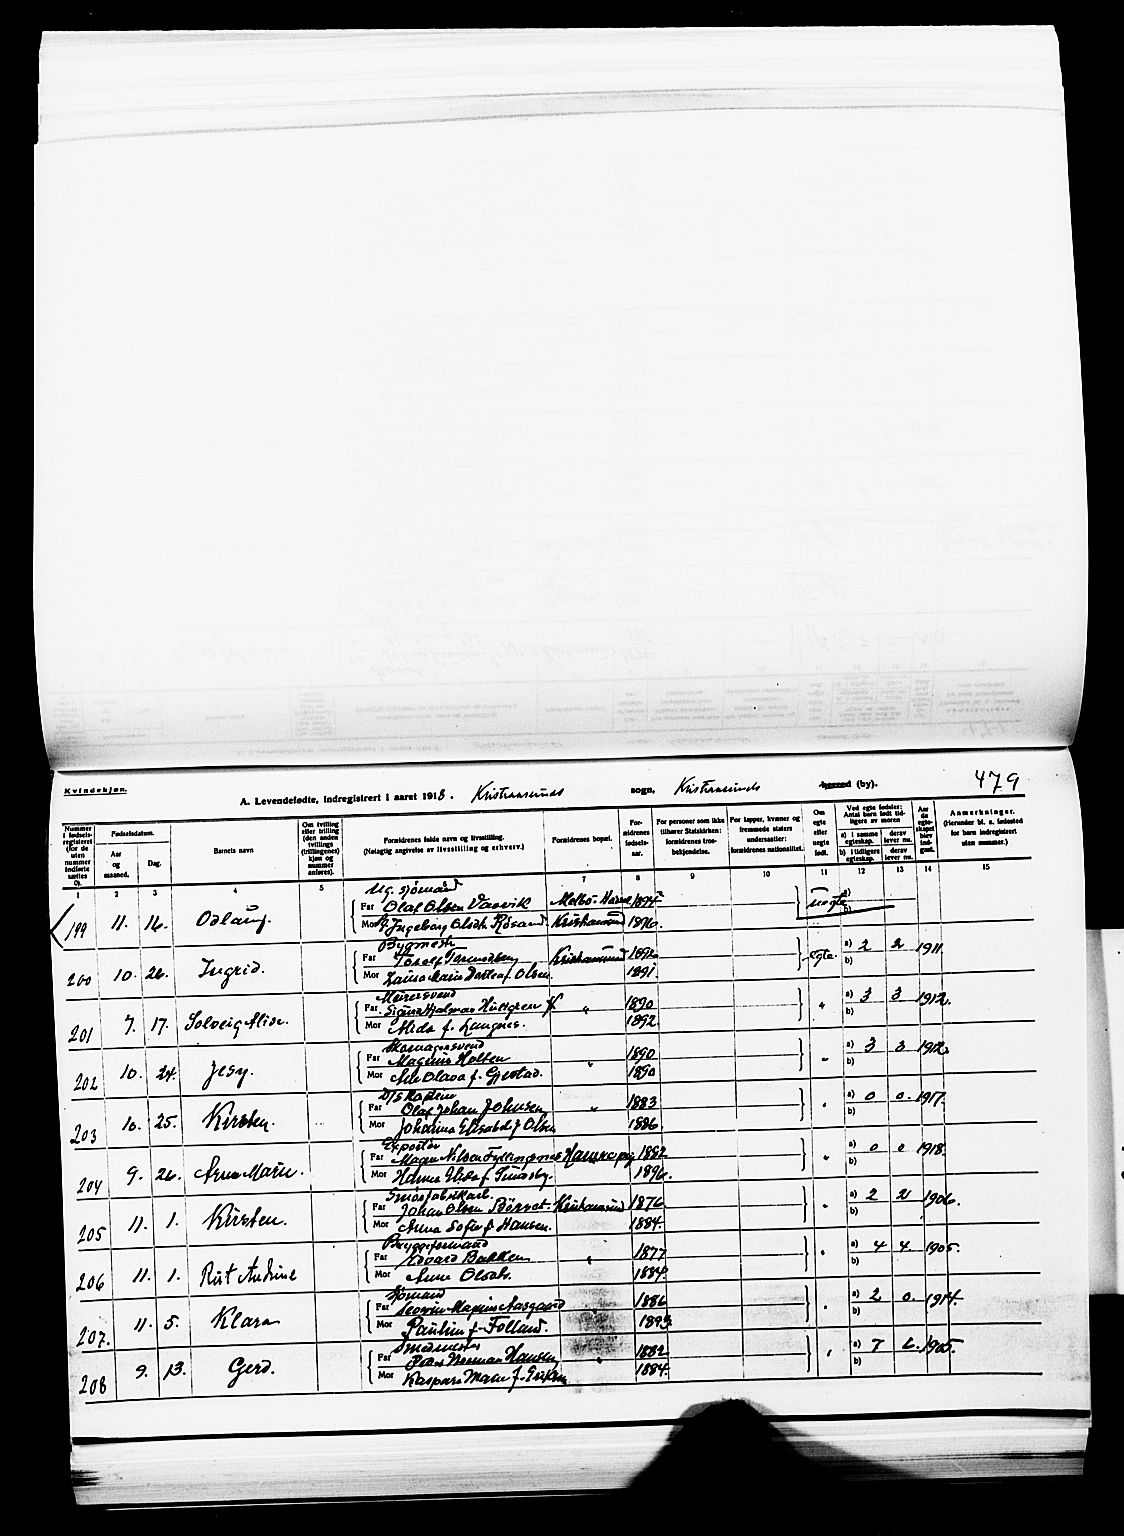 Kvindekjøn.
479
A. Levendefødte, indregistrert i aaret 1918. Kristiansunds sogn, Kristiansunds herred (by).
Nummer i fødselsregisteret (for de uten nummer indførte sættes 0).
Fødselsdatum.
Aar og maaned.
Dag.
Barnets navn
Om tvilling eller trilling (den anden tvillings (trillingenes) kjøn og nummer anføres).
Forældrenes fulde navn og livsstilling. (Nøiagtig angivelse av livsstilling og erhverv.)
Forældrenes bopæl.
Forældrenes fødselsaar.
For personer som ikke tilhører Statskirken: forældrenes trosbekjendelse.
For lapper, kvæner og fremmede staters undersaatter: forældrenes nationalitet.
Om egte eller uegte født.
Ved egte fødsler: Antal barn født tidligere av moren
a) i samme egteskap.
derav lever nu.
b) i tidligere egteskap.
derav lever nu.
Aar da egteskapet blev indgaat.
Anmerkninger. (Herunder bl. a. fødested for barn indregistrert uten nummer.)
1 2 3 4 5 6 7 8 9 10 11 12 13 14 15
Ug. sjømand
199 11. 16. Odlaug. Far Olaf Olsen Vaagvik 1894 uegte a)
Mor Ingeborg Kristiansund 1896. b)
Bygmester
200 10. 26. Ingrid. Far Kristiansund 1892 egte. a) 2 2 1911.
Mor Laura Marie f. Olsen 1891. b)
Murersvend
201 7. 17. Solveig Alise. Far Hjalmar Hultgren " 1890 " a) 3 3 1912.
Mor Alida f. Langnes. 1892. b)
Skomagersvend
202 10. 24. Jesy. Far Magnus Holten " 1890 " a) 3 3 1912.
Mor Olava f. Gjestad. 1890 b)
D/S Kaptein
203 10. 25. Kirsten. Far Olaf Johan Johnsen " 1883 " a) 0 0. 1917.
Mor Johanna Elisabet f. Olsen 1886. b)
Exportør
204 9. 26. Anna Marie. Far Nilsen 1892 " a) 0 0 1918.
Mor 1896. b)
205 11. 1. Kirsten. Far Johan Olsen Kristiansund 1876 " a) 2 2 1906.
Mor Anna Sofie f. Hansen. 1884. b)
Bryggeformand
206 11. 1. Rut Andrine Far Edvard Bakken " 1877 " a) 4 4. 1905.
Mor Anne 1884. b)
207. 11. 5. Klara Far Aasgaard " 1886 " a) 2 0. 1914.
Mor Pauline f. Folland. 1893. b)
208 9. 13. Gerd. Far Hansen " 1882 " a) 7 6. 1905.
Mor Kaspara Marie f. 1884. b)